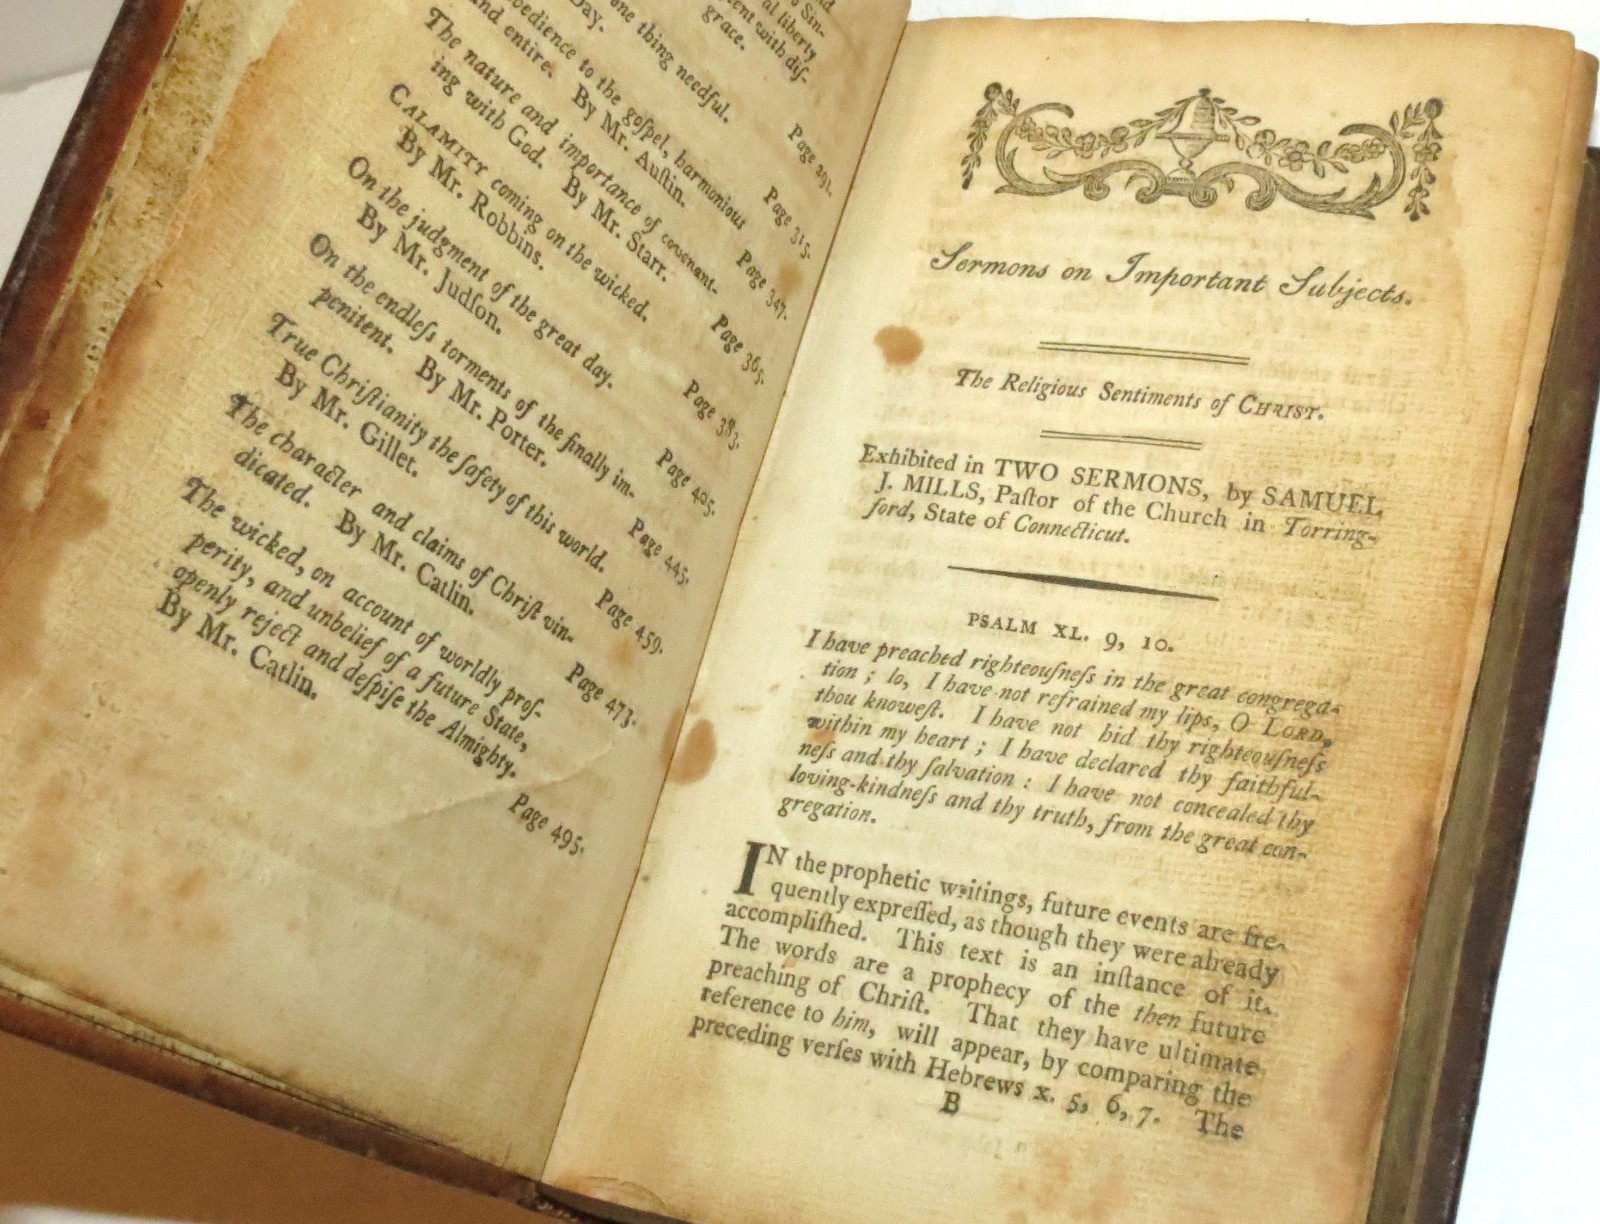 to Sin-
al liberty
ent with diſ-
grace.
Day.
one thing needful.
Page 291.
obedience to the goſpel, harmonious
and entire. By Mr. Auſtin. Page 315.
The nature and importance of covenant-
ing with God. By Mr. Starr. Page 347.
CALAMITY coming on the wicked.
By Mr. Robbins. Page 365.
On the judgment of the great day.
By Mr. Judſon. Page 383.
On the endleſs torments of the finally im-
penitent. By Mr. Porter. Page 405.
True Chriſtianity the ſafety of this world.
By Mr. Gillet. Page 445.
The character and claims of Chriſt vin-
dicated. By Mr. Catlin. Page 459.
The wicked, on account of worldly proſ-
perity, and unbelief of a future State,
openly reject and deſpiſe the Almighty.
By Mr. Catlin. Page 473.
Page 495.
Sermons on Important Subjects.
The Religious Sentiments of CHRIST.
Exhibited in TWO SERMONS, by SAMUEL
J. MILLS, Paſtor of the Church in Torring-
ford, State of Connecticut.
PSALM XL. 9, 10.
I have preached righteouſneſs in the great congrega-
tion ; lo, I have not refrained my lips, O LORD,
thou knoweſt. I have not hid thy righteouſneſs
within my heart ; I have declared thy faithful-
neſs and thy ſalvation : I have not concealed thy
loving-kindneſs and thy truth, from the great con-
gregation.
IN the prophetic writings, future events are fre-
quently expreſſed, as though they were already
accompliſhed. This text is an inſtance of it.
The words are a prophecy of the then future
preaching of Chriſt. That they have ultimate
reference to him, will appear, by comparing the
preceding verſes with Hebrews x. 5, 6, 7. The
B